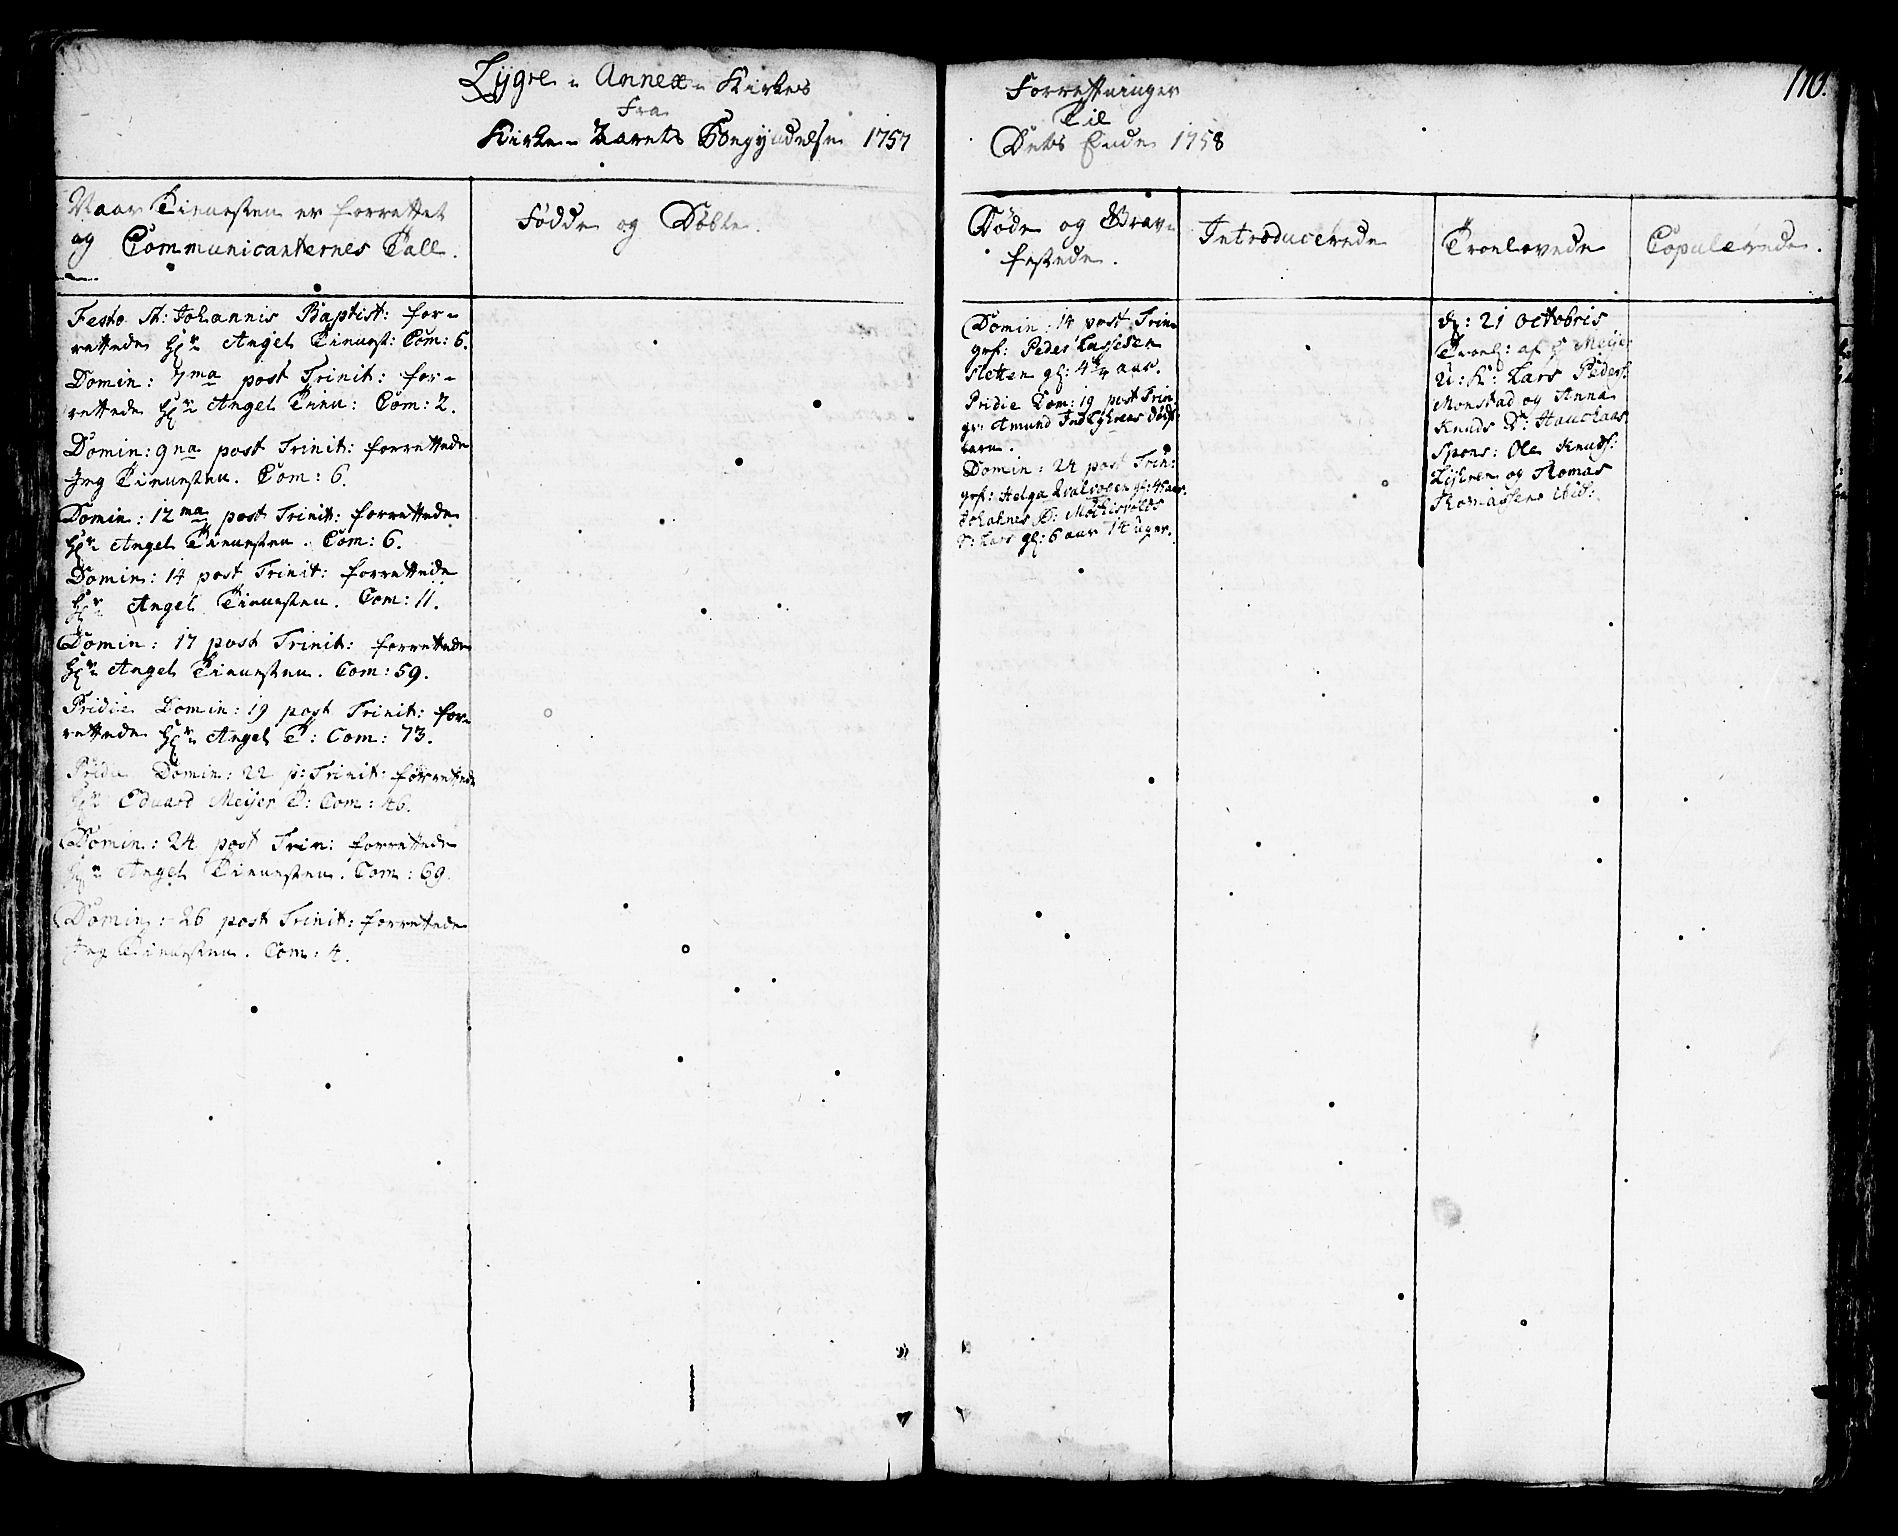 Lygre Annex Kirkes
fra
Kirke Aarets Begyndelse 1757
Forrettninger
Til
Dets Ende 1758
110.
Naar Tienesten er forrettet
og Communicanternes Tall.
Fødde og Døbte.
Døde og Grav-
festede.
Introducerede
Trolovede
Copulerede.
Festo St: Johannis Baptist: for-
rettede Hr Angel Tienest: Com: 6.
Domin: 7ma post Trinit: for-
rettede Hr Angel Tien: Com: 2.
Domin: 9na post Trinit: forrettede
Jeg Tienesten. Com: 6.
Domin: 12ma post Trinit: forrettede
Hr Angel Tienesten. Com: 6.
Domin: 14 post Trinit: forrettede
Hr Angel Tienesten. Com: 11.
Domin: 17 post Trinit: forrettede
Hr Angel Tienesten. Com: 59.
Pridie Domin: 19 post Trinit: for-
rettede Hr Angel T: Com: 73.
Pridie Domin: 22 p: Trinit: forrettede
Hr Eduard Meijer T: Com: 46.
Domin: 24 post Trin: forrettede
Hr Angel Tienesten. Com: 69.
Domin: 26 post Trinit: forrettede
Jeg Tienesten. Com: 4.
Domin: 14 post Trin:
grf: Peder Lassesen
Sletten gl: aar.
Pridie Dom: 19 post Trin:
gr: Amund
barn.
Domin: 24 post Trin:
grf: Helga gl: aar.
Johannes
S: Lars gl: 6 aar 14 uger.
d: 21 Octobris
Trol: af H Meijer
U: K: Lars Peders:
Monstad og Anna
Knuds D:
Spons: Ole Knuds:
og Thomas
Thomassen ibid: